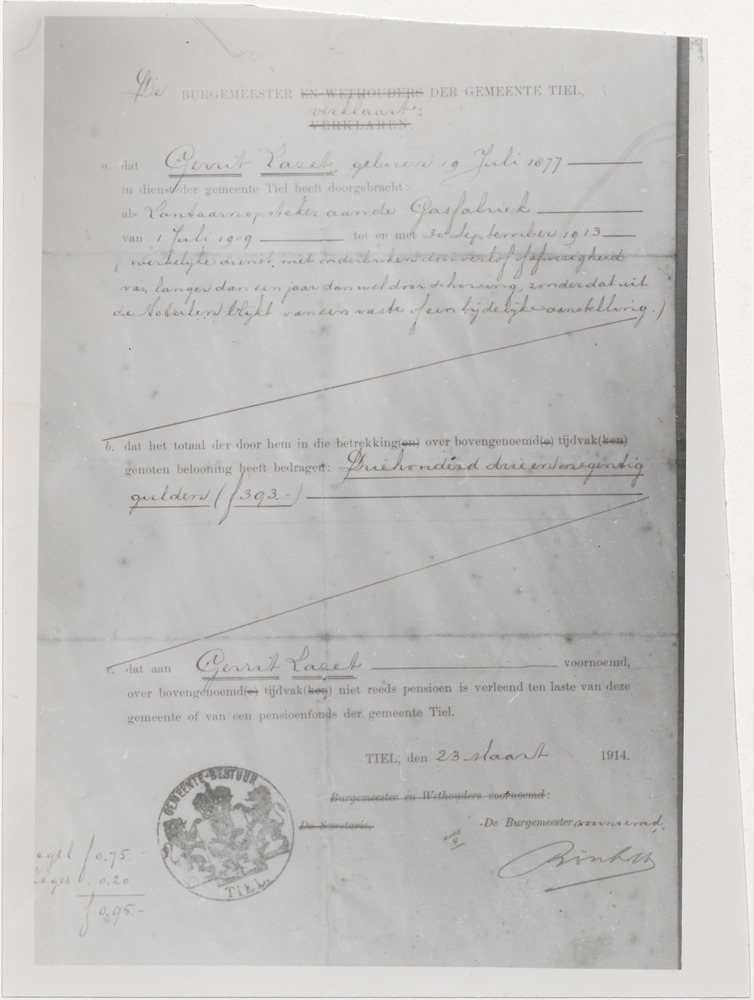 De BURGEMEESTER EN WETHOUDERS DER GEMEENTE TIEL,
verklaart:
VERKLAREN.
a. dat Gerrit Lazet, geboren 19 Juli 1877
in dienst der gemeente Tiel heeft doorgebracht:
als Lantaarnopsteker aan de Gasfabriek
van 1 Juli 1909 tot en met 30 September 1913
(werkelijke dienst, niet onderbroken door verlof of afwezigheid
van langer dan een jaar dan wel door schorsing, zonder dat uit
de Notulen blijkt van een vaste of een tijdelijke aanstelling.)
b. dat het totaal der door hem in die betrekking(en) over bovengenoemd(e) tijdvak(ken)
genoten belooning heeft bedragen: Driehonderd drie en negentig
gulden (f 393.-)
c. dat aan Gerrit Lazet voornoemd,
over bovengenoemd(e) tijdvak(ken) niet reeds pensioen is verleend ten laste van deze
gemeente of van een pensioenfonds der gemeente Tiel.
TIEL, den 23 Maart 1914.
Burgemeester en Wethouders voornoemd:
De Secretaris, De Burgemeester, voornoemd,
GEMEENTE-BESTUUR
TIEL.
f 0.75
0.20
f 0.95.-